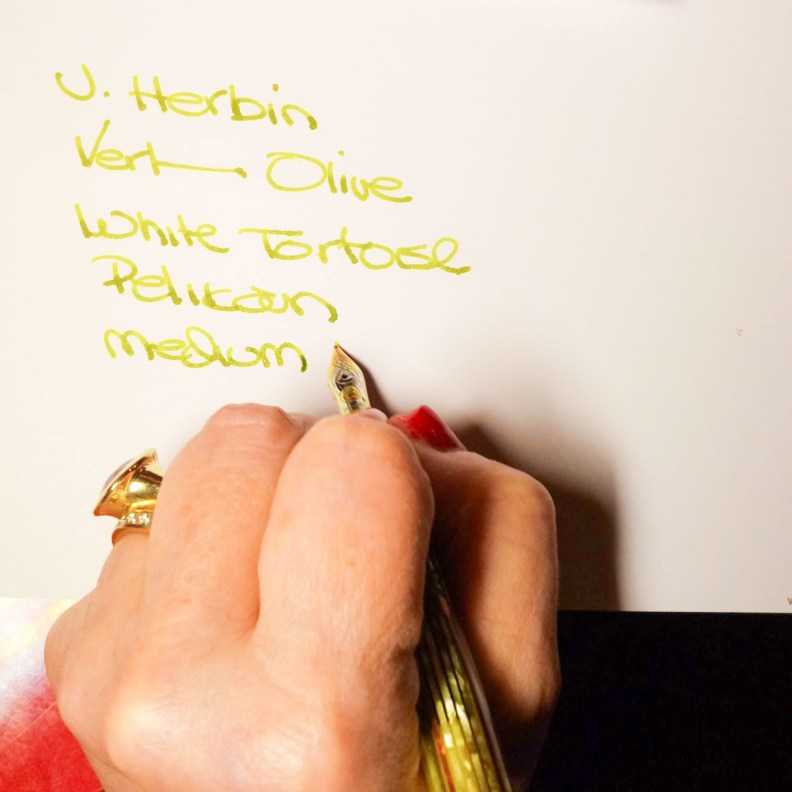 J. Herbin
Vert Olive
White Tortoise
Pelikan
medium